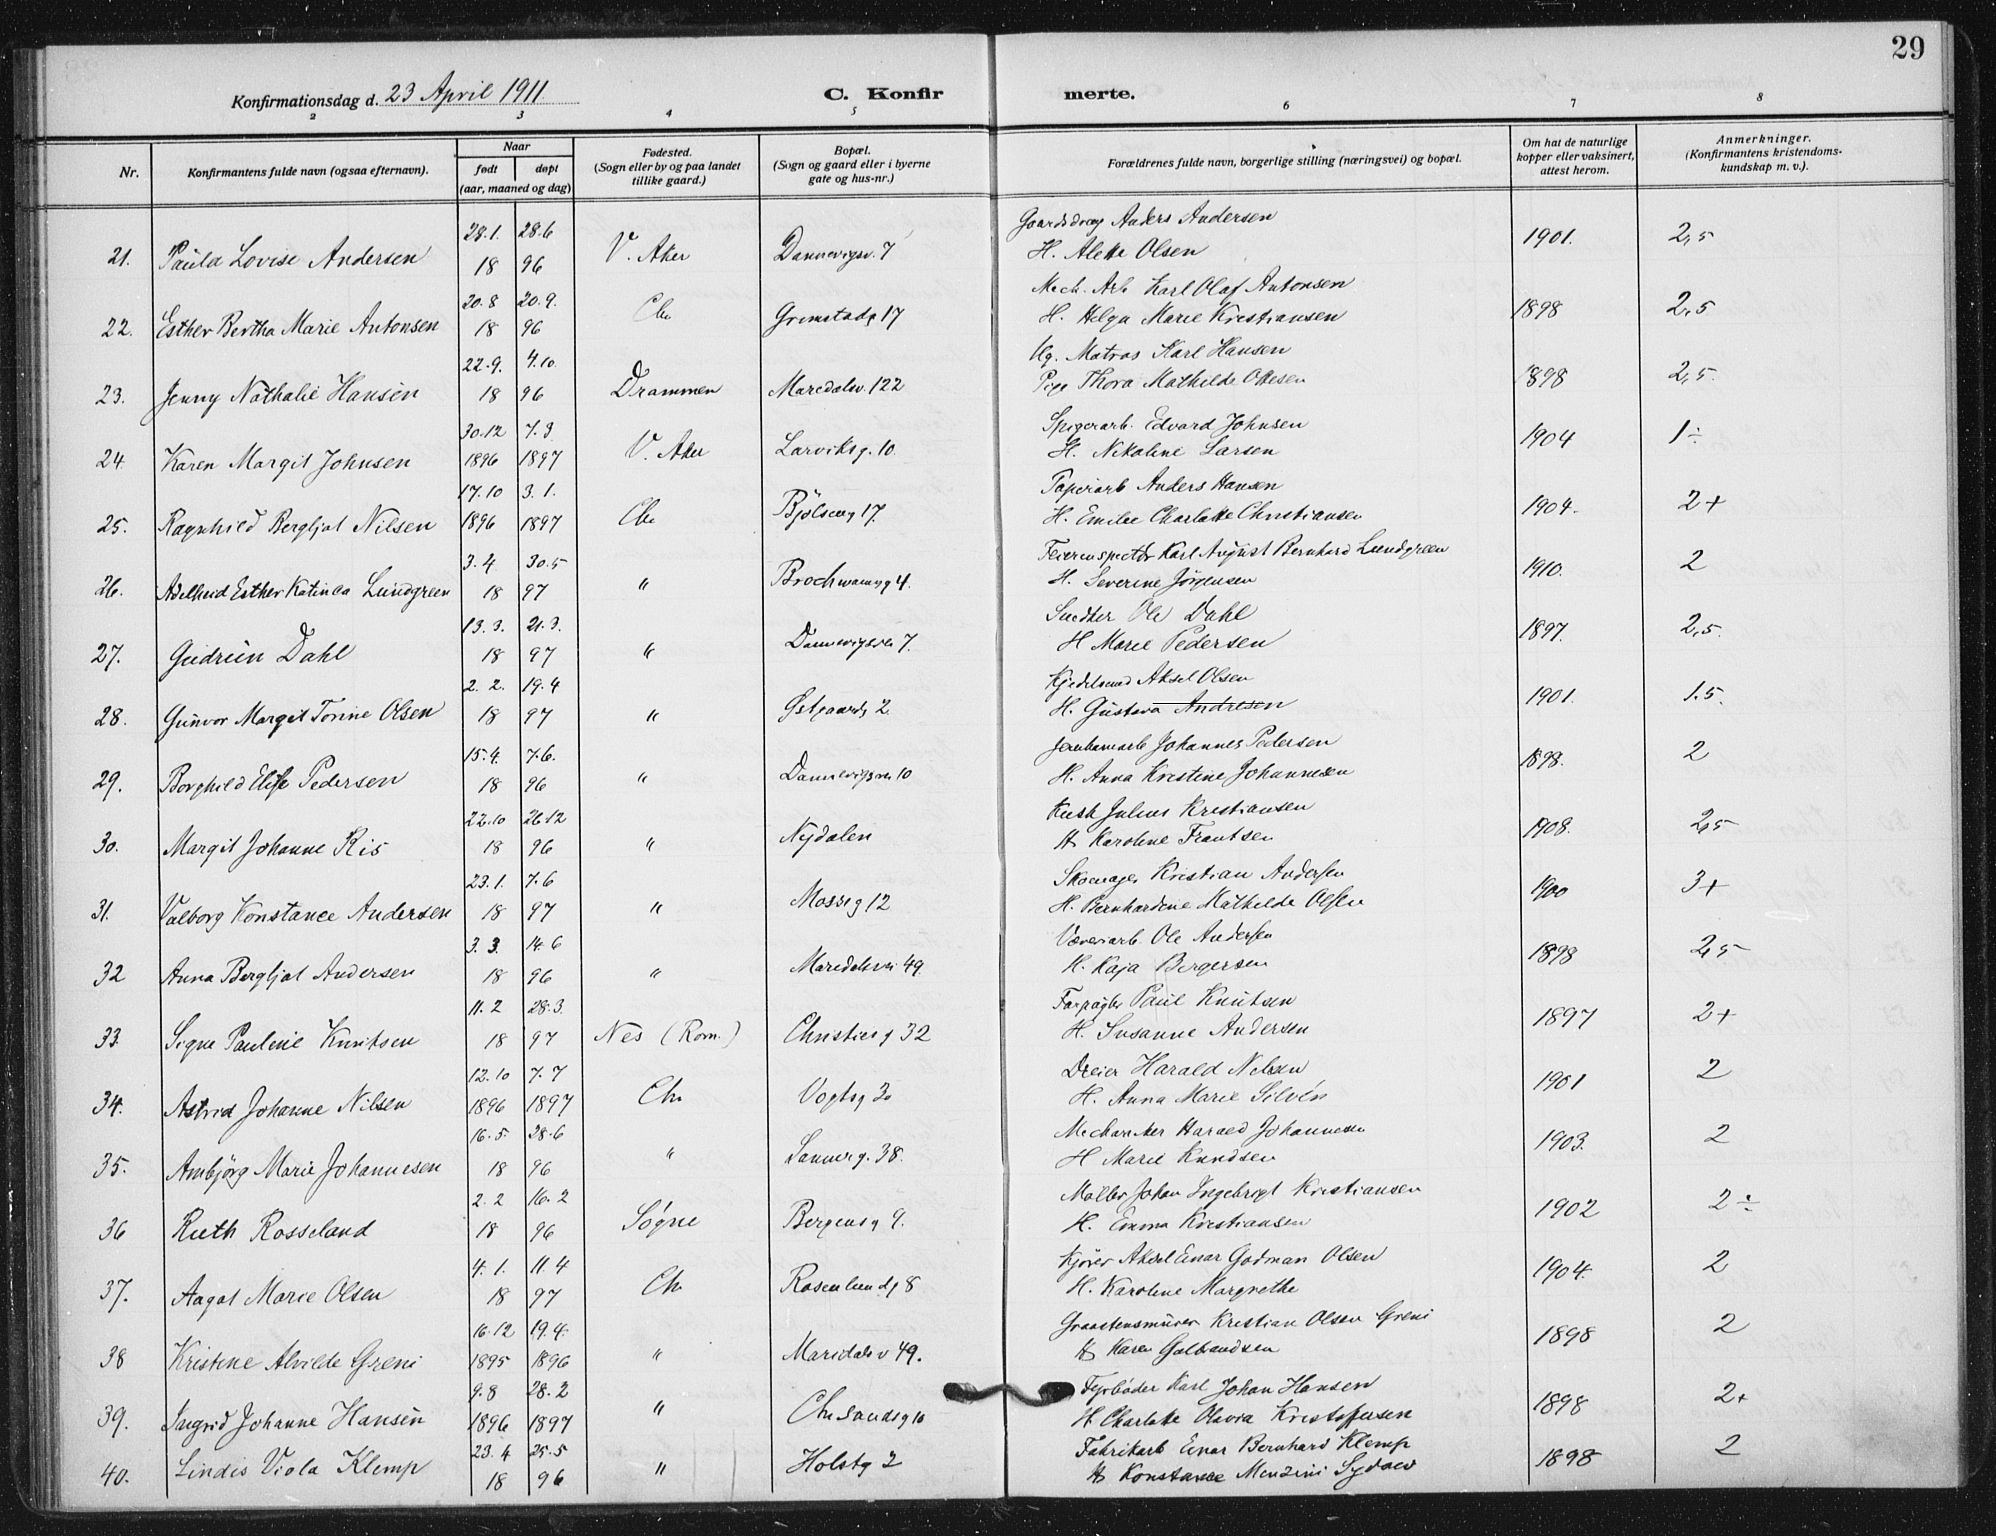 29
Konfirmationsdag d. 23 April 1911
C. Konfirmerte.
2 3 4 5 6 7 8
Nr. Konfirmantens fulde navn (ogsaa efternavn). Naar født døpt (aar, maaned og dag) Fødested. (Sogn eller by og paa landet tillike gaard.) Bopæl. (Sogn og gaard eller i byerne gate og hus-nr.) Forældrenes fulde navn, borgerlige stilling (næringsvei) og bopæl. Om hat de naturlige kopper eller vaksinert, attest herom. Anmerkninger. (Konfirmantens kristendoms-kundskap m. v.).
28.1. 28.6 Anders Andersen
21. Paula Lovise Andersen 18 96 V. Aker Dannevigsv. 7 H. Alette Olsen 1901. 2,5
20.8 20.9. Mech. Arb Karl Olaf Antonsen
22. Esther Bertha Marie Antonsen 18 96 Chr Grimstadg 17 H. Helga Marie Kristiansen 1898 2,5
22.9. 4.10. Ug. Matros Karl Hansen
23. Jenny Nathalie Hansen 18 96 Drammen Maredalsv. 122 Pige Thora Mathilde Ottesen 1898 2,5.
30.12 7.3 Spigerarb. Edvard Johnsen
24. Karen Margit Johnsen 1896 1897 V. Aker Larviksg. 10. H. Nikoline Larsen 1904 1÷
17.10 3.1. Papirarb Anders Hansen
25. Ragnhild Bergljot Nilsen 1896 1897 Chr Bjölseng 17. H. Emilie Charlotte Christiansen 1904. 2+
3.4 30.5 Karl August Bernhard Lundgreen
26. Adelheid Esther Katinca Lundgreen 18 97 " Brochmannsg 4. H. Severine Jörgensen 1910. 2
13.3. 21.3. Snedker Ole Dahl
27. Gudrun Dahl 18 97 " Dannevigsvei 7. H Marie Pedersen 1897. 2,5.
2.2. 19.4 Kjedelsmed Aksel Olsen
28. Gunvor Margit Torine Olsen 18 97 " Østgaardsg 2. H. Gustava Andresen 1901. 1.5.
15.4. 7.6. Jernbanearb Johannes Pedersen
29. Borghild Elise Pedersen 18 96 " Dannevigsvei 10 H. Anna Kristine Johannesen 1898. 2
22.10 26.12 Kusk Julius Kristiansen
30. Margit Johanne Ris 18 96 " Nydalen H Karoline Frantsen 1908. 2,5
23.1. 7.6 Skomager Kristian Andersen
31. Valborg Konstance Andersen 18 97 " Mosseg 12 H. Bernhardine Mathilde Olsen 1900 3+
3.3. 14.6 Væveriarb. Ole Andersen
32 Anna Bergljot Andersen 18 96 " Maredalsvei 49. H. Kaja Bergersen 1898 2,5
11.2 28.3. Forpagter Paul Knutsen
33. Signe Pauline Knutsen 18 97 Nes (Rom.) Christiesg 32 H. Susanne Andersen 1897 2+
12.10 7.7 Dreier Harald Nilsen
34. Astrid Johanne Nilsen 1896 1897 Chr Vogtsg H. Anna Marie Silvén 1901 2
16.5. 28.6 Mechaniker Harald Johannesen
35. Ambjörg Marie Johannesen 18 96 " Sannerg. 38. H Marie Knudsen 1903. 2
2.2 16.2 Møller Johan Ingebrigt Kristiansen
36 Ruth Rosseland 18 96 Søgne Bergensg 9. H. Emma Kristiansen 1902 2÷
4.1. 11.4 Kjører Aksel Einar Godman Olsen
37. Aagot Marie Olsen 18 97 Chr Rosenlundg 8 H. Karoline Margrethe 1904. 2
16.12 19.4. Graastensmurer Kristian Olsen Greni
38 Kristine Alvilde Greni 1895 1896 " Maridalsv 49. H Karen Gulbrandsen 1898 2
9.8 28.2 Fyrbøder Karl Johan Hansen
39. Ingrid Johanne Hansen 1896 1897 " Chr.sandsg 10 H. Charlotte Olavia Kristoffersen 1898 2+
23.4 25.5 Fabrikarb Einar Bernhard Klemp
40. Lindis Viola Klemp 18 96 " Holstg 2 H Konstance Menzini 1898 2